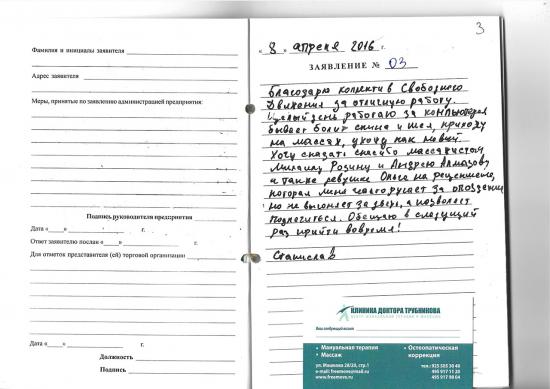 Фамилия и инициалы заявителя
Адрес заявителя
Меры, принятые по заявлению администрацией предприятия:
Подпись руководителя предприятия
Дата « » г.
Ответ заявителю послан « » г.
Для отметок представителя (ей) торговой организации
Дата « » г.
Должность
Подпись
3
« 8 » апреля 2016 г.
ЗАЯВЛЕНИЕ № 03
Благодарю коллектив Свободного
Движения за отличную работу.
Целый день работаю за компьютером
бывает болит спина и шея, прихожу
на массаж, ухожу как новый
Хочу сказать спасибо массажистам
Михаилу Родину и Андрею Алмазову
и также девушке Ольге на рецепшене,
которая меня ругает за опоздения
но не выгоняет за дверь, а позволяет
подлечиться. Обещаю в следущий
раз прийти вовремя!
Станислав
КЛИНИКА ДОКТОРА ТРУБНИКОВА
ЦЕНТР МАНУАЛЬНОЙ ТЕРАПИИ И МАССАЖА
Ваш лечащий врач
• Мануальная терапия
• Массаж
• Остеопатическая
коррекция
ул. Машкова 28/20, стр.1
e-mail: freemove@mail.ru
www.freemove.ru
тел.: 925 585 30 40
495 917 11 20
495 917 98 04